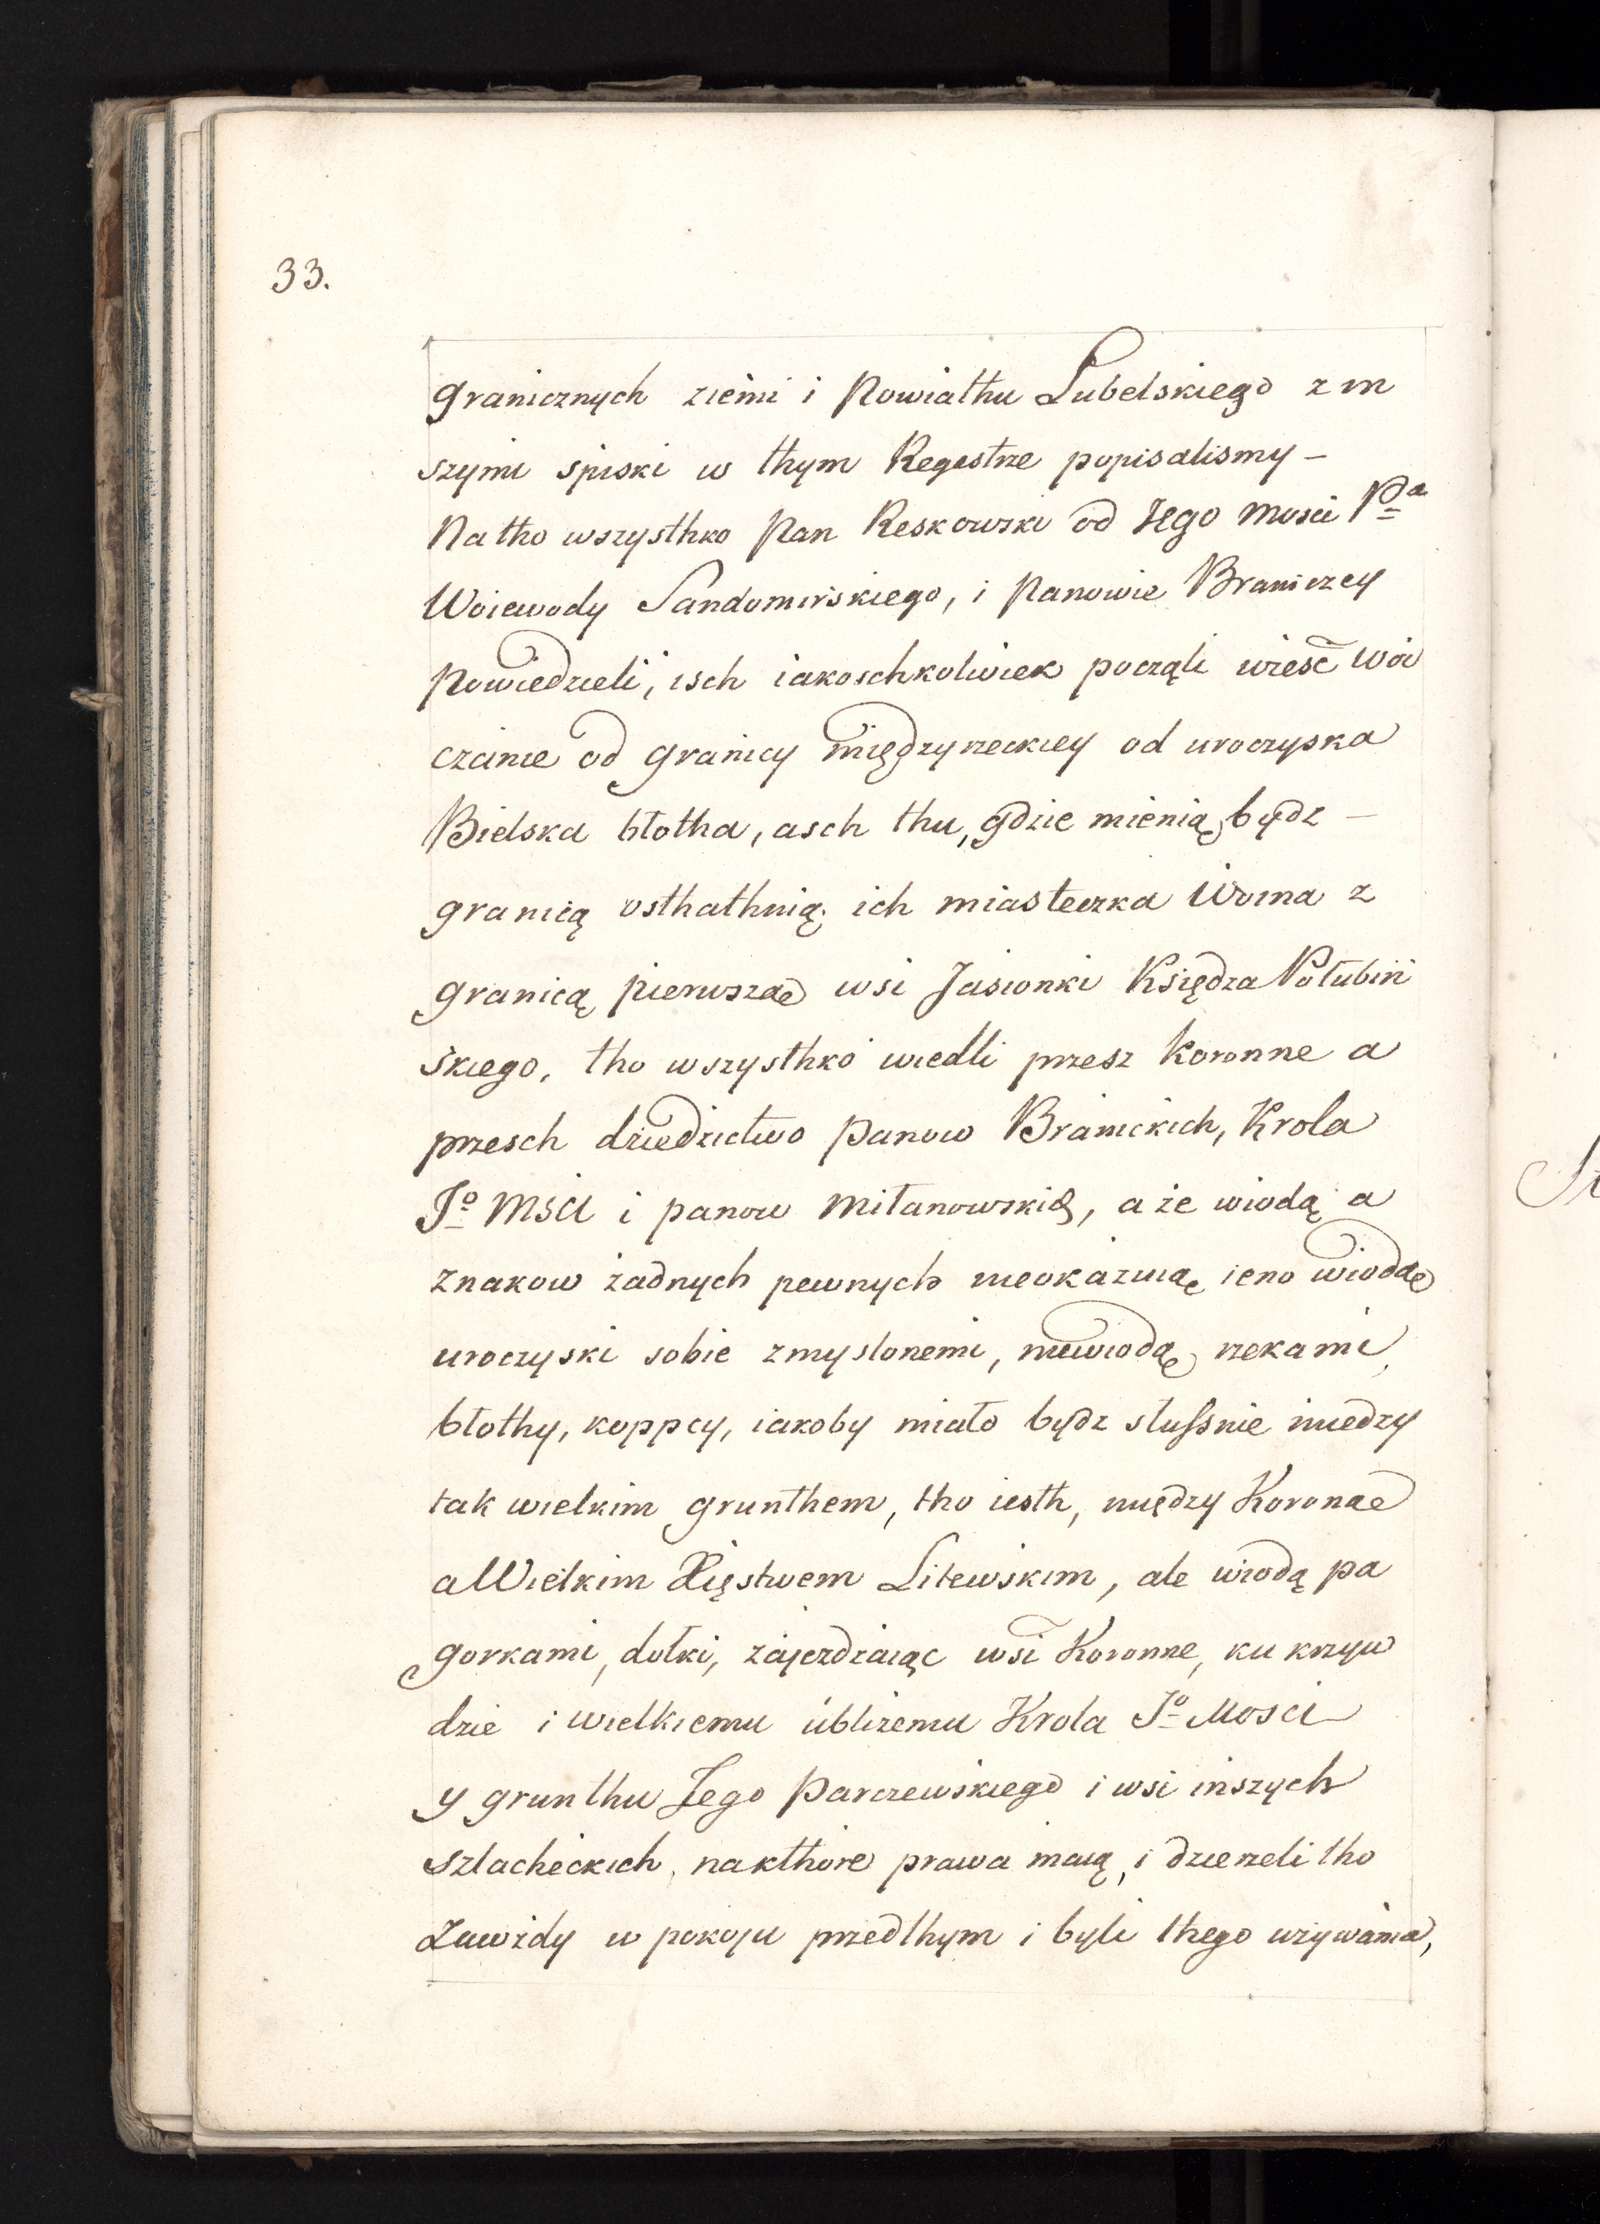 33.
granicznych ziemi i Powiathu Lubelskiego z in
szymi spiski w thym Regestrze popisalismy –
Na tho wszysthko Pan Reskowski od Jego Mosci Pa
Woiewody Sandomirskiego, i Panowie Braniczcy
powiedzieli, isch iakoschkolwiek poczęli wiesc Woi
czinie od granicy międzyrzeckiey od uroczyska
Bielska błotha, asch thu, gdzie mienią bydz –
granicą osthathnią ich miasteczka Woina z
granicą pierwszą wsi Jasionki Księdza Połubiń
skiego, tho wszysthko wiedli przesz Koronne a
przesch dziedzictwo panow Branickich, Krola
Jº Msci i panow Miłanowskich, a że wiodą a
znakow żadnych pewnych nieokazuią ieno wiodą
uroczyski sobie zmyslonemi, niewiodą rzekami,
błothy, koppcy, iakoby miało bydz słussnie miedzy
tak wielkim grunthem, tho iesth, między Koroną
a Wielkim Xięstwem Litewskim, ale wiodą pa
gorkami, dołki, zajezdzaiąc wsi Koronne, ku krzyw
dzie i wielkiemu ubliżemu Krola Jº Mosci
y grunthu Jego Parczewskiego i wsi inszych
szlacheckich, na kthore prawa maią, i dzierzeli tho
Zawżdy w pokoju przedthym i byli thego używania,